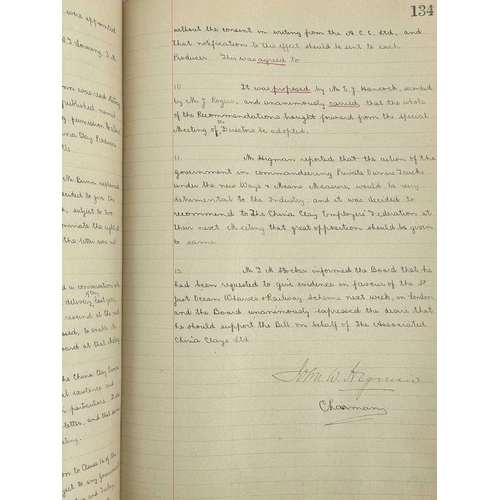 134
were appointed
without the consent in writing from the A.C.C. Ltd., and
that notification to this effect should be sent to each
Producer. This was agreed to
10. It was proposed by Mr E. J. Hancock, seconded
by Mr J. Rogers, and unanimously carried that the whole
of the Recommendations brought forward from the special
Meeting of the Directors be adopted.
11. Mr Higman reported that the action of the
government in commandeering Private Owners Trucks
under the new Ways & Means Measures, would be very
detrimental to the Industry, and it was decided to
recommend to The China Clay Employers Federation at
their next Meeting that great opposition should be given
to same
12. Mr T. M. Stocker informed the Board that he
had been requested to give evidence in favour of the St
Just Ocean Wharves & Railway Scheme next week, in London
and the Board unanimously expressed the desire that
he should support the Bill on behalf of The Associated
China Clays Ltd
John W. Higman
Chairman
was read stating
published named
permission to
Clay Producers
Mr Bunn
decided to give the
subject to two
the letter was
a conversation
delivery, last year,
at the next
to enable
board at that
the China Clay
existence and
particulars
letter, and that
to Clause 14 of the
to any